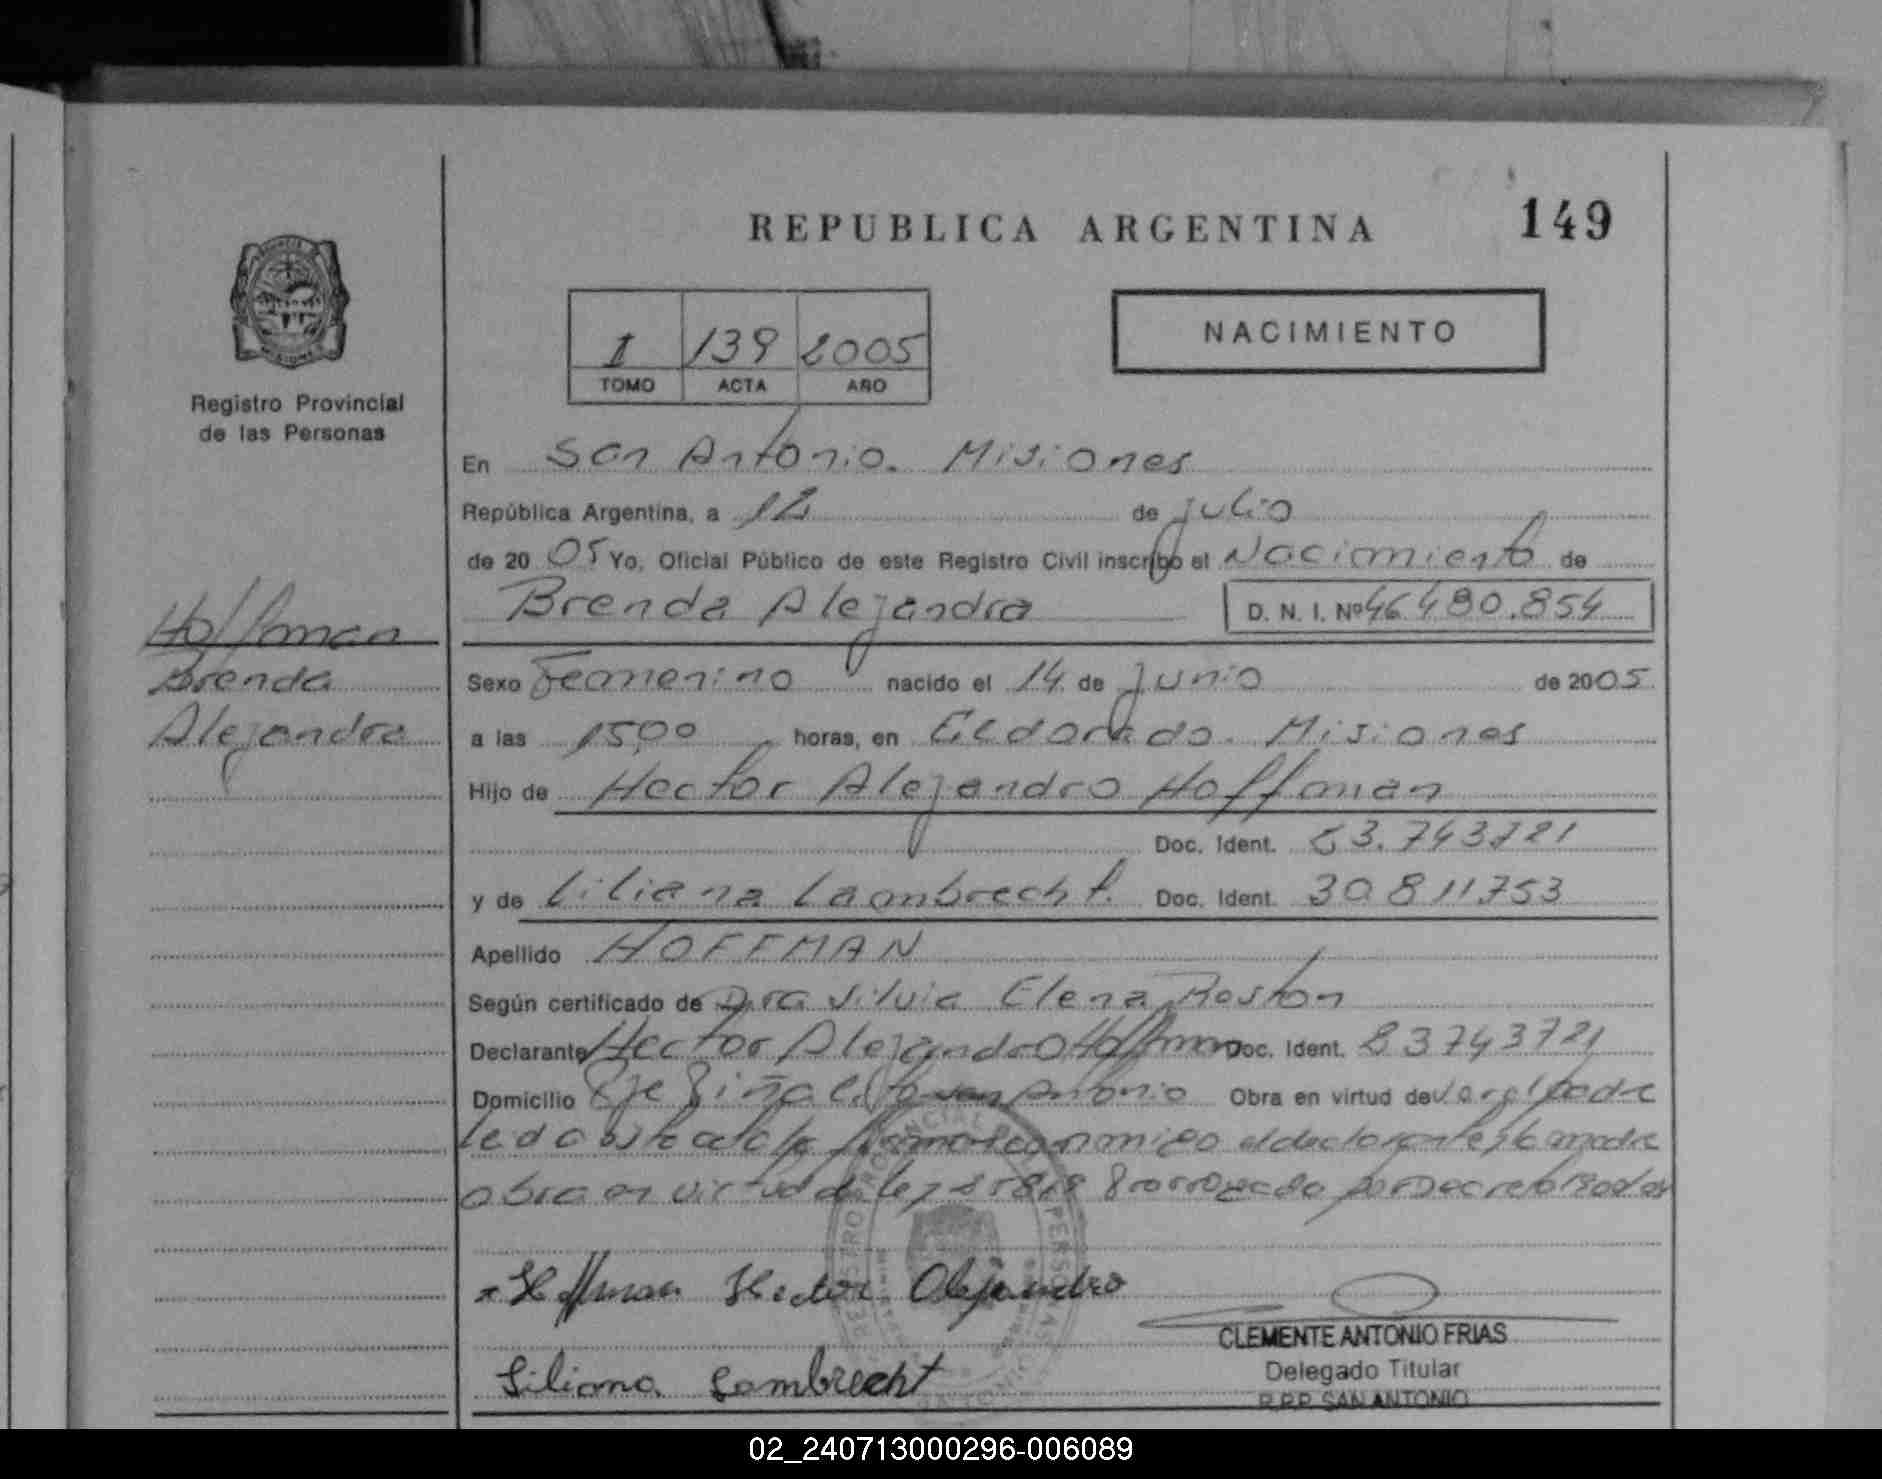 REPUBLICA ARGENTINA 149
1 139 2005
TOMO ACTA AÑO
NACIMIENTO
Registro Provincial
de las Personas
En San Antonio. Misiones
República Argentina, a 12 de julio
de 20 05 Yo, Oficial Público de este Registro Civil inscribo el Nacimiento de
Brenda Alejandra D. N. I. Nº 46.480.854
Hoffman
Brenda
Alejandra
Sexo Femenino nacido el 14 de junio de 2005
a las 15,00 horas, en Eldorado. Misiones
Hijo de Hector Alejandro Hoffman
Doc. Ident. 23.743721
y de Liliana Lambrecht. Doc. Ident. 30811753
Apellido HOFFMAN
Según certificado de Dra Silvia Elena Roston
Declarante Hector Alejandro Hoffman Doc. Ident. 23743721
Domicilio San Antonio Obra en virtud de padre
conmigo el declarante y la madre
obra en virtud de ley por Decreto
Hoffman Hector Alejandro
CLEMENTE ANTONIO FRIAS
Delegado Titular
Liliana Lambrecht
R.P.P. SAN ANTONIO
02_240713000296-006089